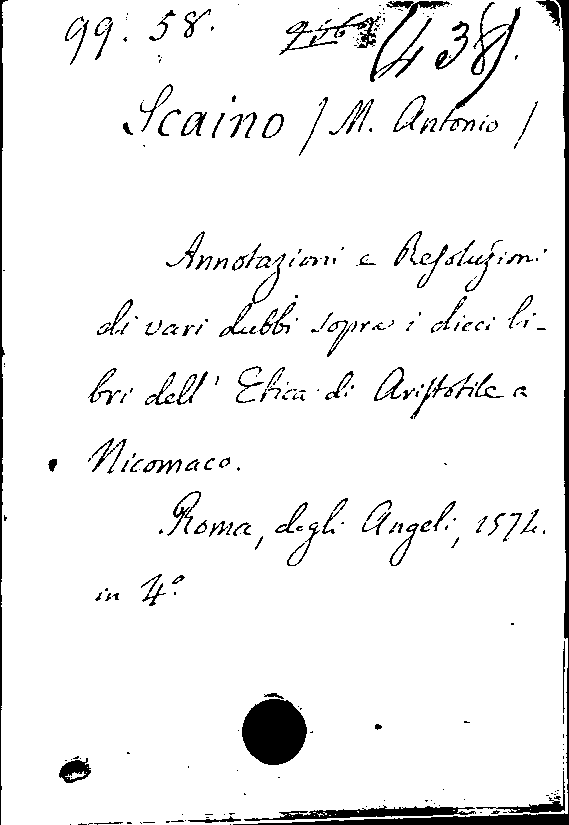 99. 58. (438).
Scaino / M. Antonio /
Annotazioni e Resoluzioni
di vari dubbi sopra i dieci li-
bri dell' Etica di Aristotile a
Nicomaco.
Roma, degli Angeli, 1574.
in 4.º